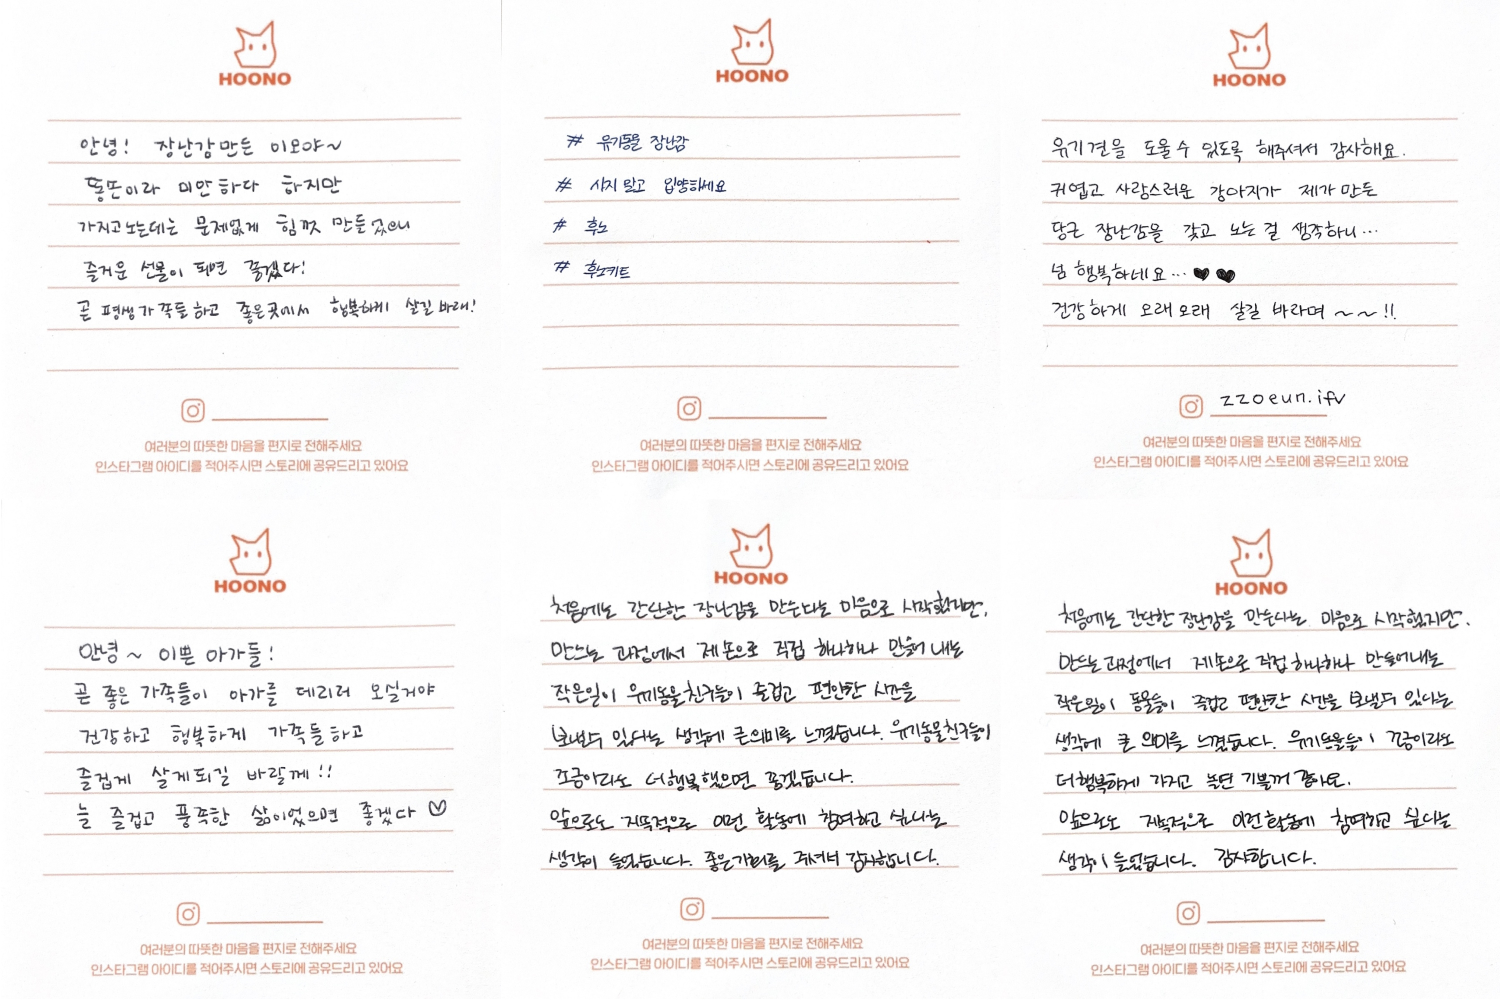 HOONO
안녕! 장난감만든 이모야~
똥똔이라 미안하다 하지만
가지고노는데는 문제없게 힘껏 만들었으니
즐거운 선물이 되면 좋겠다!
곧 평생가족들하고 좋은곳에서 행복하게 살길 바래!
여러분의 따뜻한 마음을 편지로 전해주세요
인스타그램 아이디를 적어주시면 스토리에 공유드리고 있어요
HOONO
# 유기동물 장난감
# 사지 말고 입양하세요
# 후노
# 후노키트
여러분의 따뜻한 마음을 편지로 전해주세요
인스타그램 아이디를 적어주시면 스토리에 공유드리고 있어요
HOONO
유기견을 도울 수 있도록 해주셔서 감사해요.
귀엽고 사랑스러운 강아지가 제가 만든
당근 장난감을 갖고 노는 걸 생각하니...
넘 행복하네요... ♥ ♥
건강하게 오래오래 살길 바라며 ~~!!
zzoeun.ifv
여러분의 따뜻한 마음을 편지로 전해주세요
인스타그램 아이디를 적어주시면 스토리에 공유드리고 있어요
HOONO
안녕~ 이쁜 아가들!
곧 좋은 가족들이 아가를 데리러 오실거야
건강하고 행복하게 가족들하고
즐겁게 살게되길 바랄께!!
늘 즐겁고 풍족한 삶이었으면 좋겠다 ♡
여러분의 따뜻한 마음을 편지로 전해주세요
인스타그램 아이디를 적어주시면 스토리에 공유드리고 있어요
HOONO
처음에는 간단한 장난감을 만든다는 마음으로 시작했지만,
만드는 과정에서 제 손으로 직접 하나하나 만들어 내는
작은일이 유기동물친구들이 즐겁고 편안한 시간을
보낼수 있다는 생각에 큰의미를 느꼈습니다. 유기동물친구들이
조금이라도 더행복했으면 좋겠습니다.
앞으로도 지속적으로 이런 활동에 참여하고 싶다는
생각이 들었습니다. 좋은기회를 주셔서 감사합니다.
여러분의 따뜻한 마음을 편지로 전해주세요
인스타그램 아이디를 적어주시면 스토리에 공유드리고 있어요
HOONO
처음에는 간단한 장난감을 만든다는 마음으로 시작했지만.
만드는 과정에서 제손으로 직접 하나하나 만들어내는
작은일이 동물들이 즐겁고 편안한 시간을 보낼수 있다는
생각에 큰 의미를 느꼈습니다. 유기동물들이 조금이라도
더행복하게 가지고 놀면 기쁠꺼 같아요.
앞으로도 지속적으로 이런활동에 참여하고 싶다는
생각이 들었습니다. 감사합니다.
여러분의 따뜻한 마음을 편지로 전해주세요
인스타그램 아이디를 적어주시면 스토리에 공유드리고 있어요